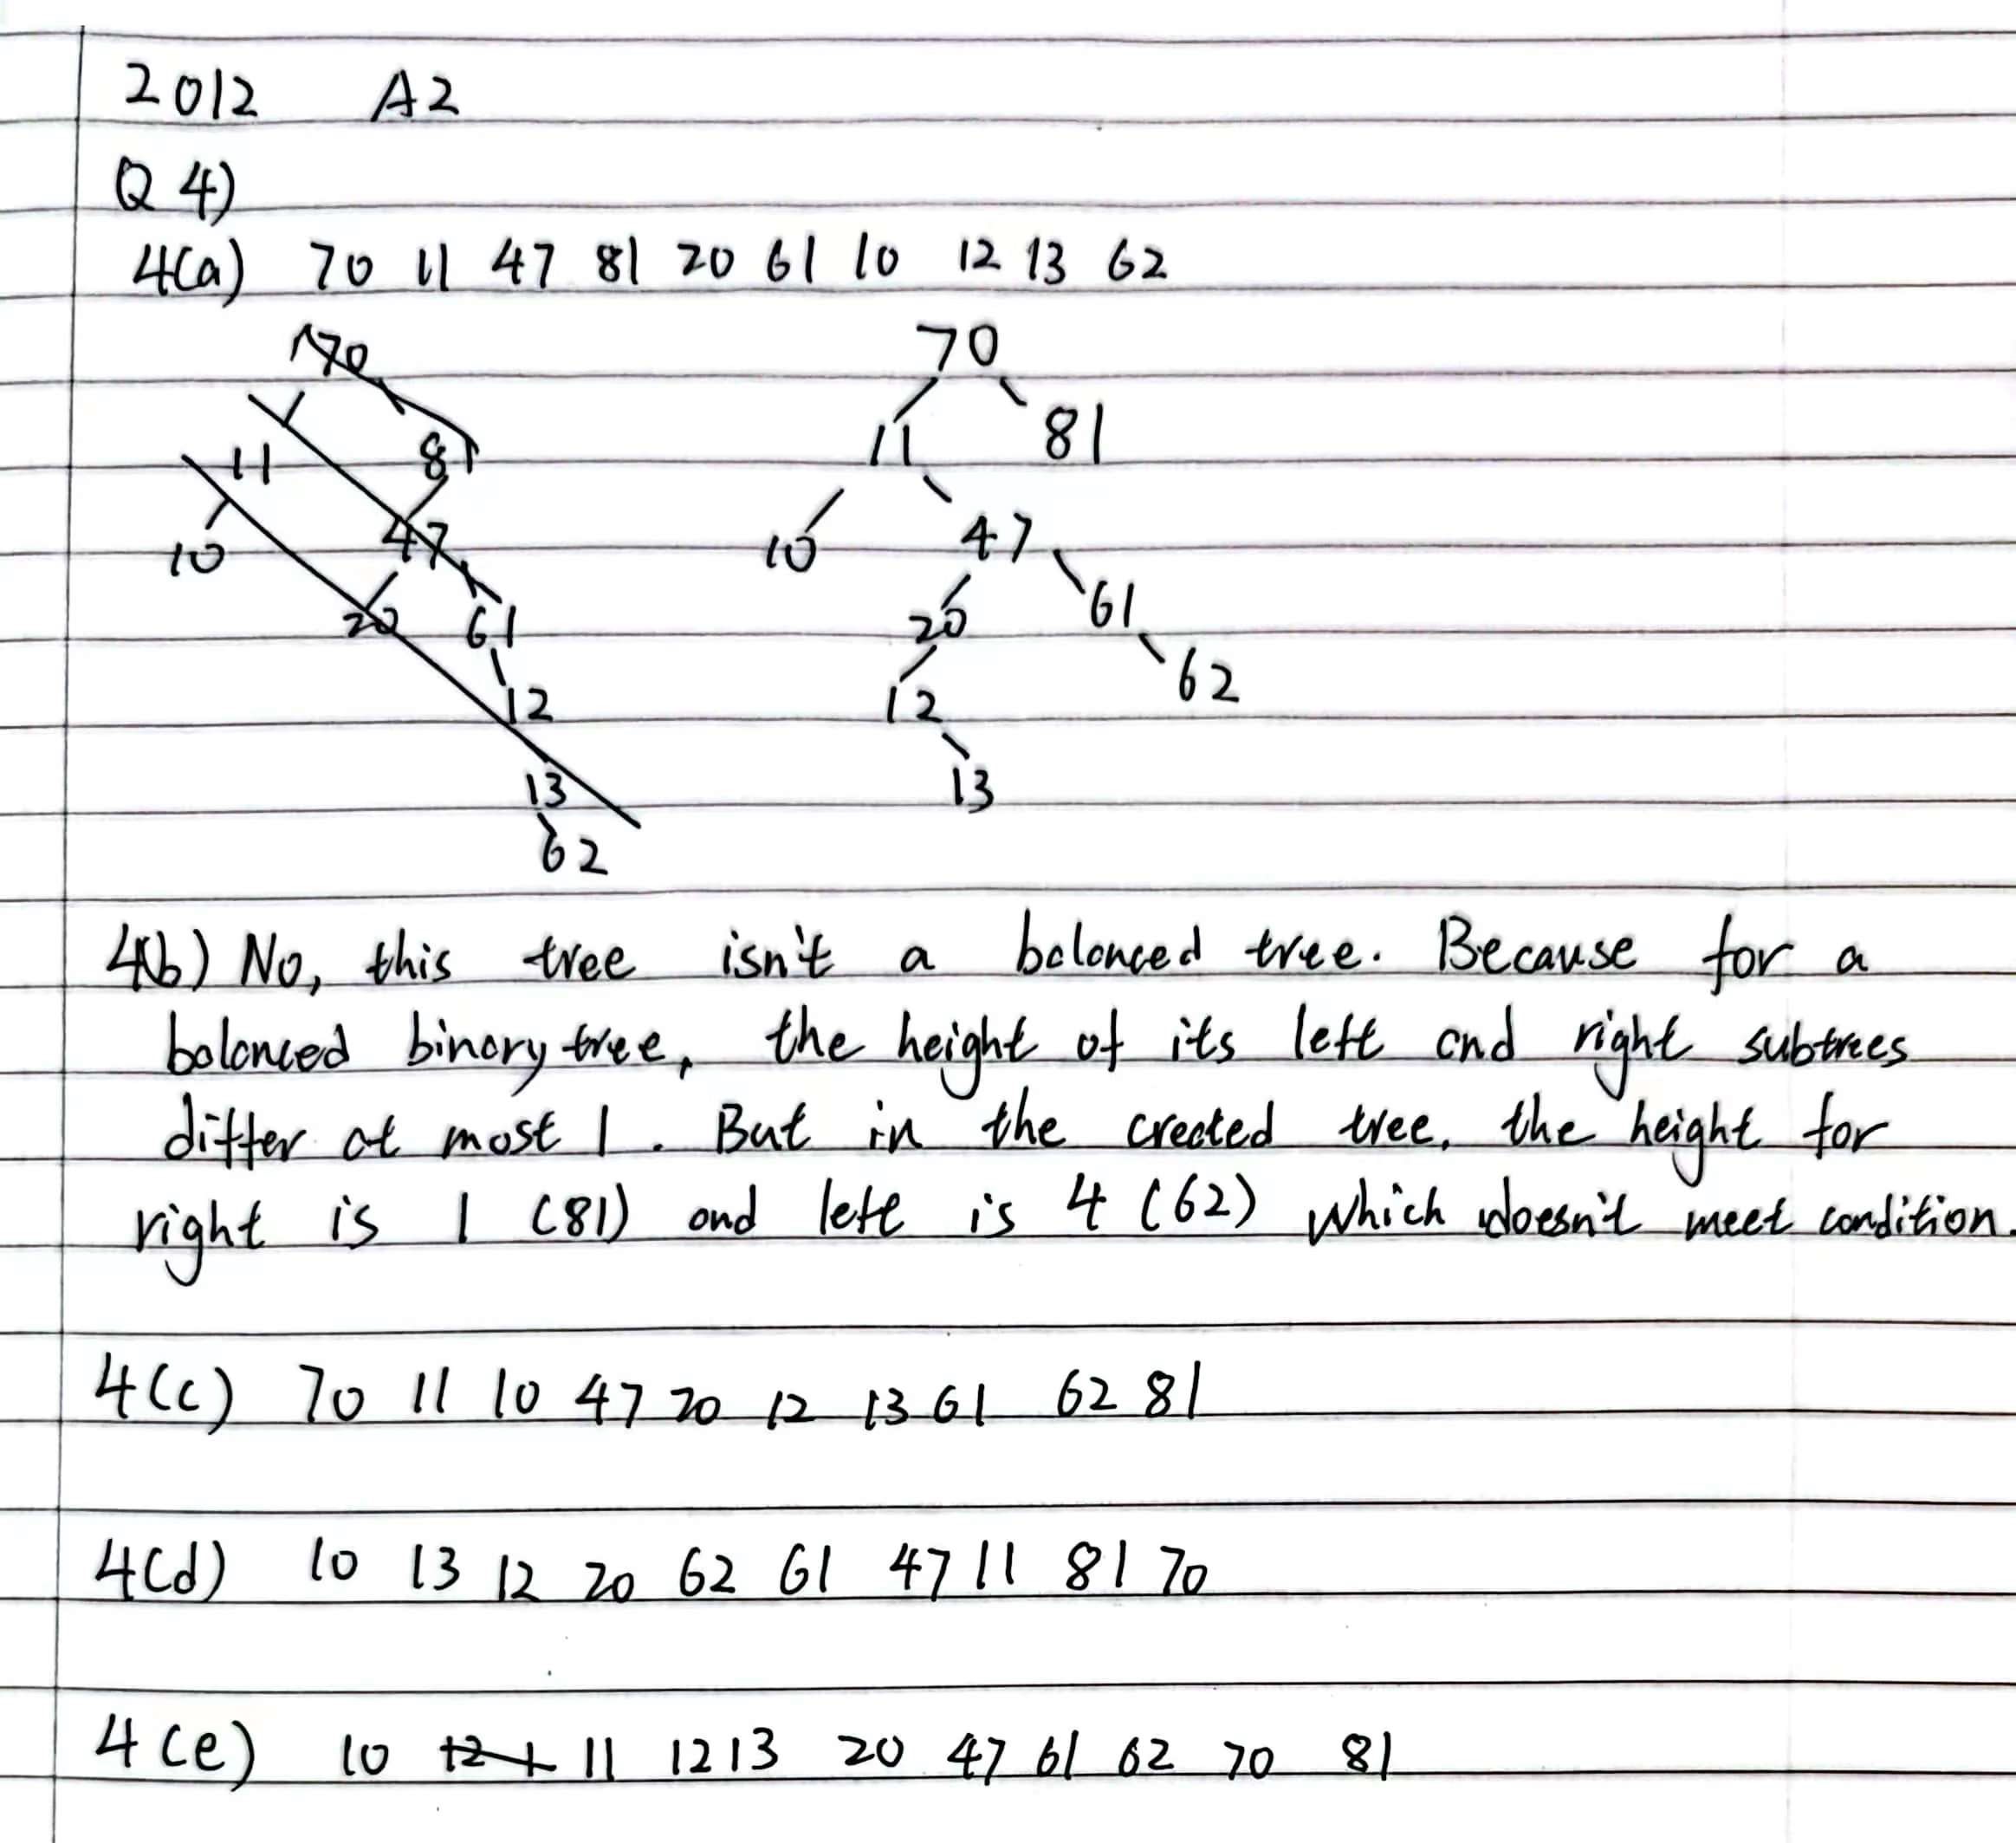 2012 A2
Q 4)
4(a) 70 11 47 81 20 61 10 12 13 62
70
11 81
10 47
20 61
12
13
62
70
11 81
10 47
20 61
12 62
13
4(b) No, this tree isn't a balanced tree. Because for a
balanced binary tree, the height of its left and right subtrees
differ at most 1. But in the created tree, the height for
right is 1 (81) and left is 4 (62) which doesn't meet condition.
4(c) 70 11 10 47 20 12 13 61 62 81
4(d) 10 13 12 20 62 61 47 11 81 70
4(e) 10 12 1 11 12 13 20 47 61 62 70 81